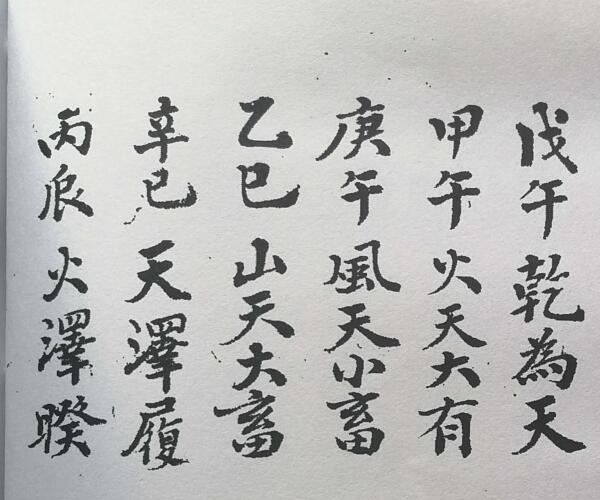 戊午乾為天
甲午火天大有
庚午風天小畜
乙巳山天大畜
辛巳天澤履
丙辰火澤睽